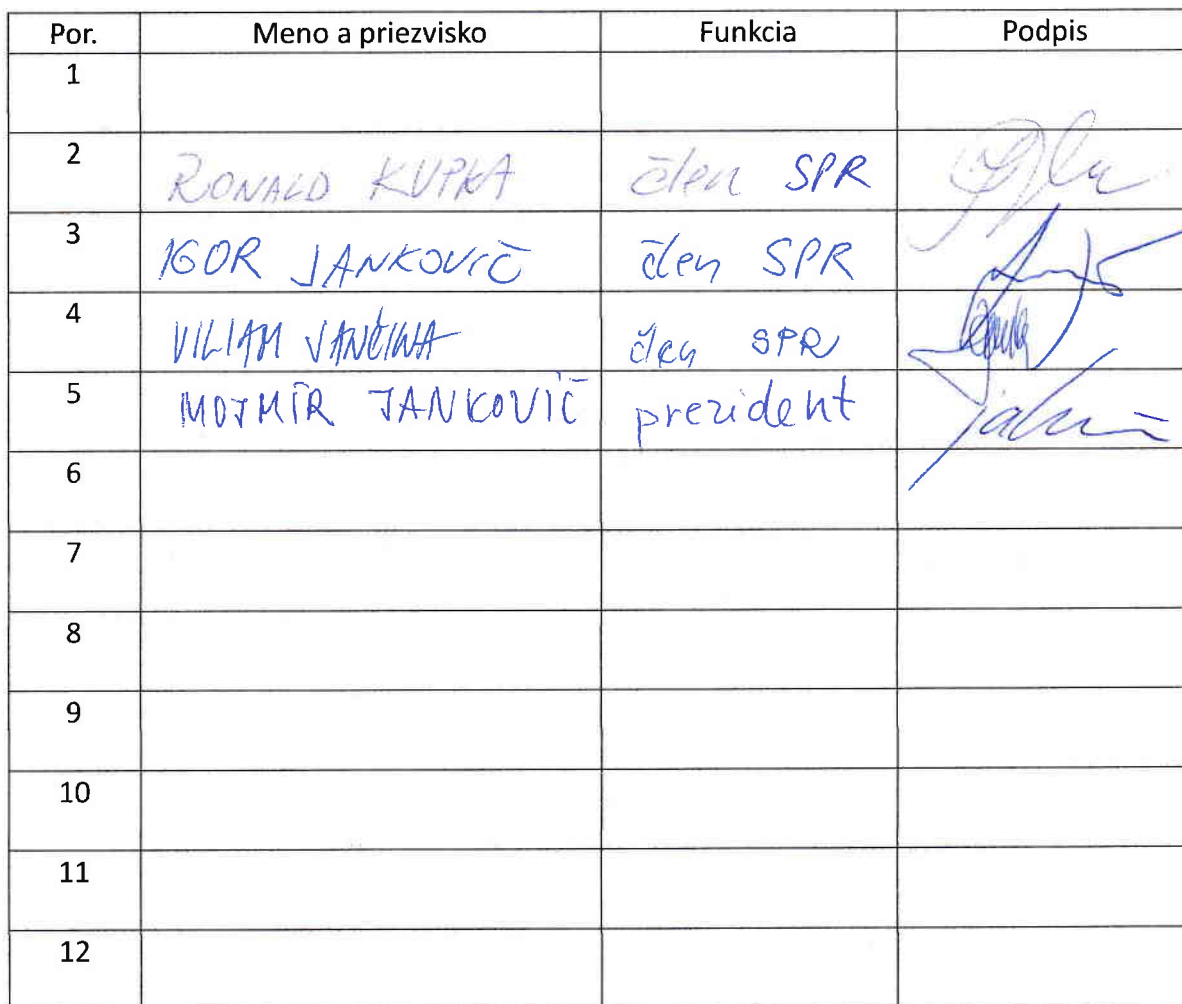 Por. Meno a priezvisko Funkcia Podpis
1
2 RONALD KUPKA člen SPR
3 IGOR JANKOVIČ člen SPR
4 VILIAM JANČINA člen SPR
5 MOJMÍR JANKOVIČ prezident
6
7
8
9
10
11
12